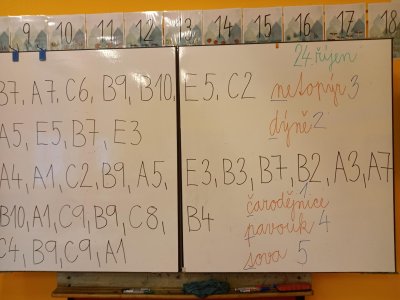 9 10 11 12 13 14 15 16 17 18
24. říjen
B7, A7, C6, B9, B10, E5, C2
netopýr 3
A5, E5, B7, E3
dýně 2
A4, A1, C2, B9, A5, E3, B3, B7, B2, A3, A7
1
čarodějnice
B10, A1, C9, B9, C8, B4
pavouk 4
C4, B9, C9, A1
sova 5